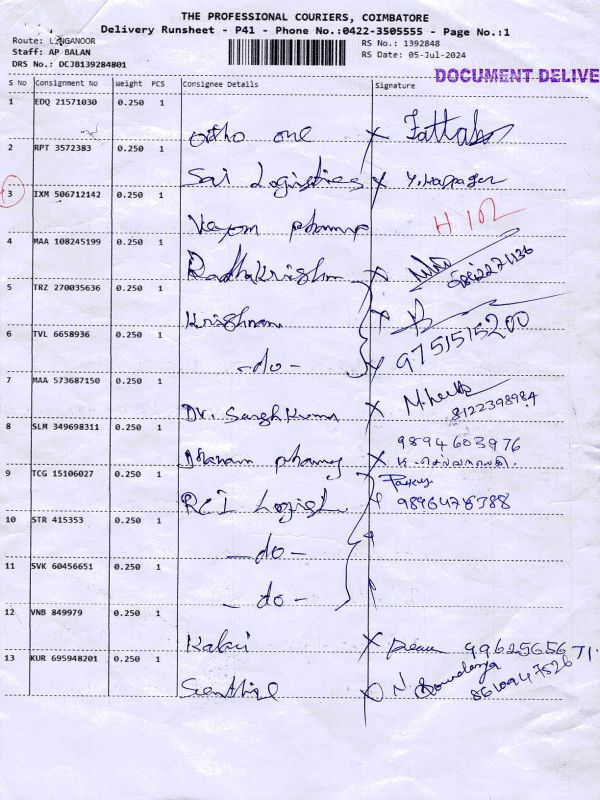 THE PROFESSIONAL COURIERS, COIMBATORE
Delivery Runsheet - P41 - Phone No.:0422-3505555 - Page No.:1
Route: LINGANOOR
Staff: AP BALAN
DRS No.: DCJB139284801
RS No.: 1392848
RS Date: 05-Jul-2024
DOCUMENT DELIVE
S No Consignment No Weight PCS Consignee Details Signature
1 EDQ 21571030 0.250 1
Ortho one X
2 RPT 3572383 0.250 1
Sai Logistics X
3 IXM 506712142 0.250 1
pharma H 102
4 MAA 108245199 0.250 1
Radhakrishn X
5 TRZ 270035636 0.250 1
Krishnan X 9751515200
6 TVL 6658936 0.250 1
-do- X
7 MAA 573687150 0.250 1
Dr. X 8122398984
8 SLM 349698311 0.250 1
9894603976
X
9 TCG 15106027 0.250 1
RCI Logist
10 STR 415353 0.250 1
-do-
11 SVK 60456651 0.250 1
-do-
12 VNB 849979 0.250 1
Kalai X 9962565671.
13 KUR 695948201 0.250 1
N. Soundarya